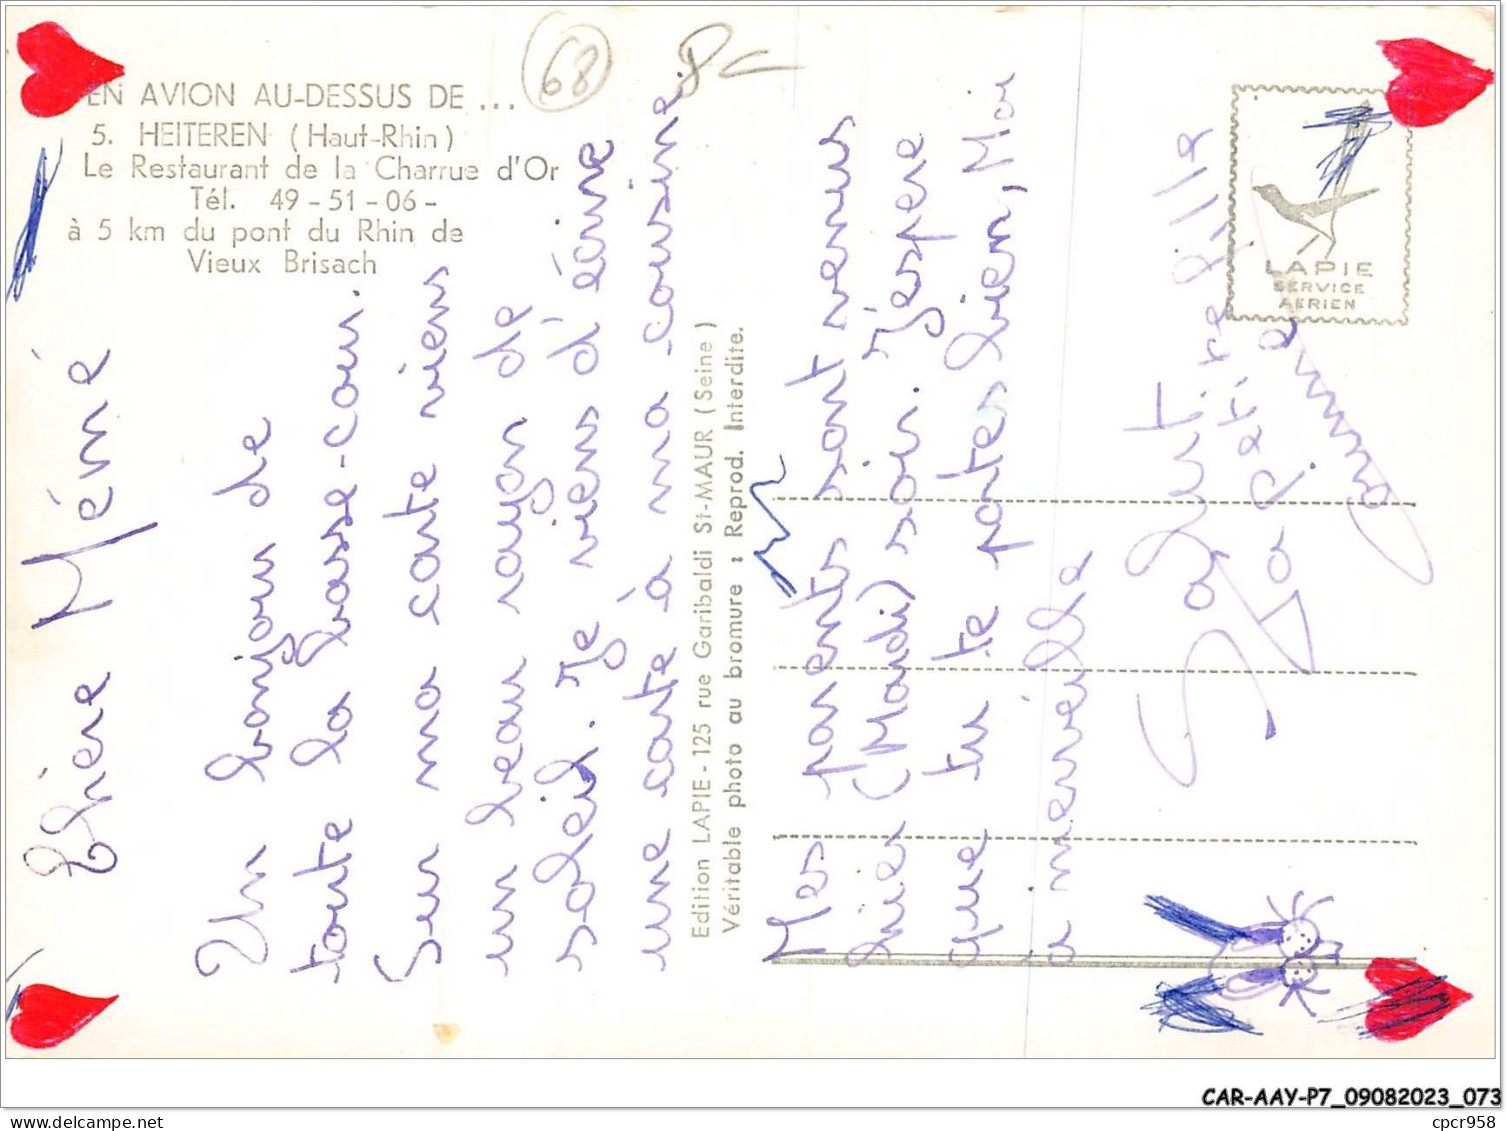 EN AVION AU-DESSUS DE ...
5. HEITEREN (Haut-Rhin)
Le Restaurant de la Charrue d'Or
Tél. 49-51-06-
à 5 km du pont du Rhin de
Vieux Brisach
68
LAPIE
SERVICE
AERIEN
Edition LAPIE - 125 rue Garibaldi St-MAUR (Seine)
Véritable photo au bromure : Reprod. Interdite.
Chère Mémé
Un bonjour de
toute la basse-cour.
Sur ma carte viens
un beau rayon de
soleil. Je viens d'écrire
une carte à ma cousine.
Mes parents sont venus
hier (Mardi) soir. J'espère
que tu te portes bien, Moi
à merveille
Salut
Ta petite fille
CAR-AAY-P7_09082023_073
cpcr958